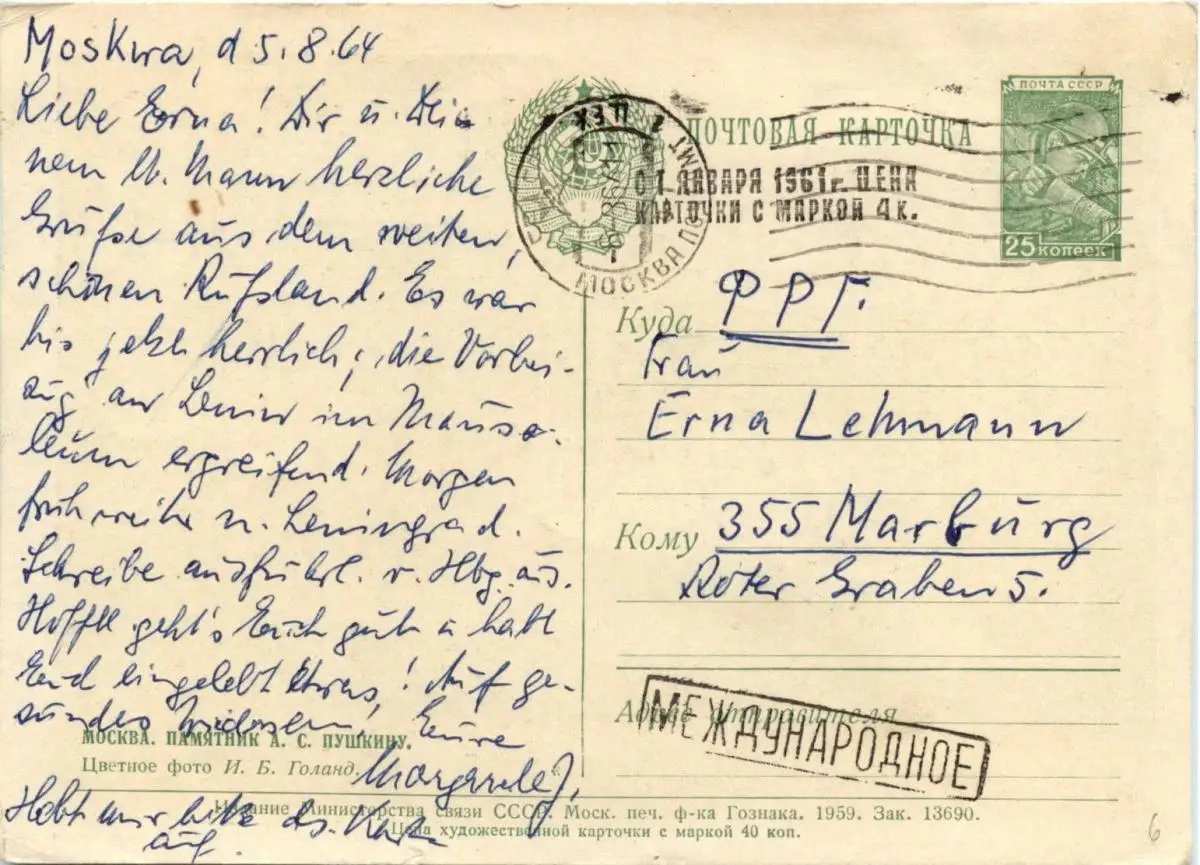 Moskwa, d 5.8.64
Liebe Erna! Dir u. Dei-
nem lb. Mann herzliche
Grüße aus dem weiten,
schönen Rußland. Es war
bis jetzt herrlich; die Vorbei-
zug an Lenin im Mauso-
leum ergreifend. Morgen
früh weiter n. Leningrad.
Schreibe ausführl. v. Hbg. aus.
Hofftl. geht's Euch gut u habt
Euch eingelebt etwas! Auf ge-
sundes Eure
Hebt mir bitte ds. Karte
auf.
ПОЧТОВАЯ КАРТОЧКА
С 1 ЯНВАРЯ 1961 г. ЦЕНА
КАРТОЧКИ С МАРКОЙ 4 к.
МОСКВА ПОЧТАМТ
1 ЦЕХ
ПОЧТА СССР
25 КОПЕЕК
Куда ФРГ.
Frau
Erna Lehmann
Кому 355 Marburg
Roter Graben 5.
Адрес отправителя
МЕЖДУНАРОДНОЕ
МОСКВА. ПАМЯТНИК А. С. ПУШКИНУ.
Цветное фото И. Б. Голанд
Издание Министерства связи СССР. Моск. печ. ф-ка Гознака. 1959. Зак. 13690.
Цена художественной карточки с маркой 40 коп.
6